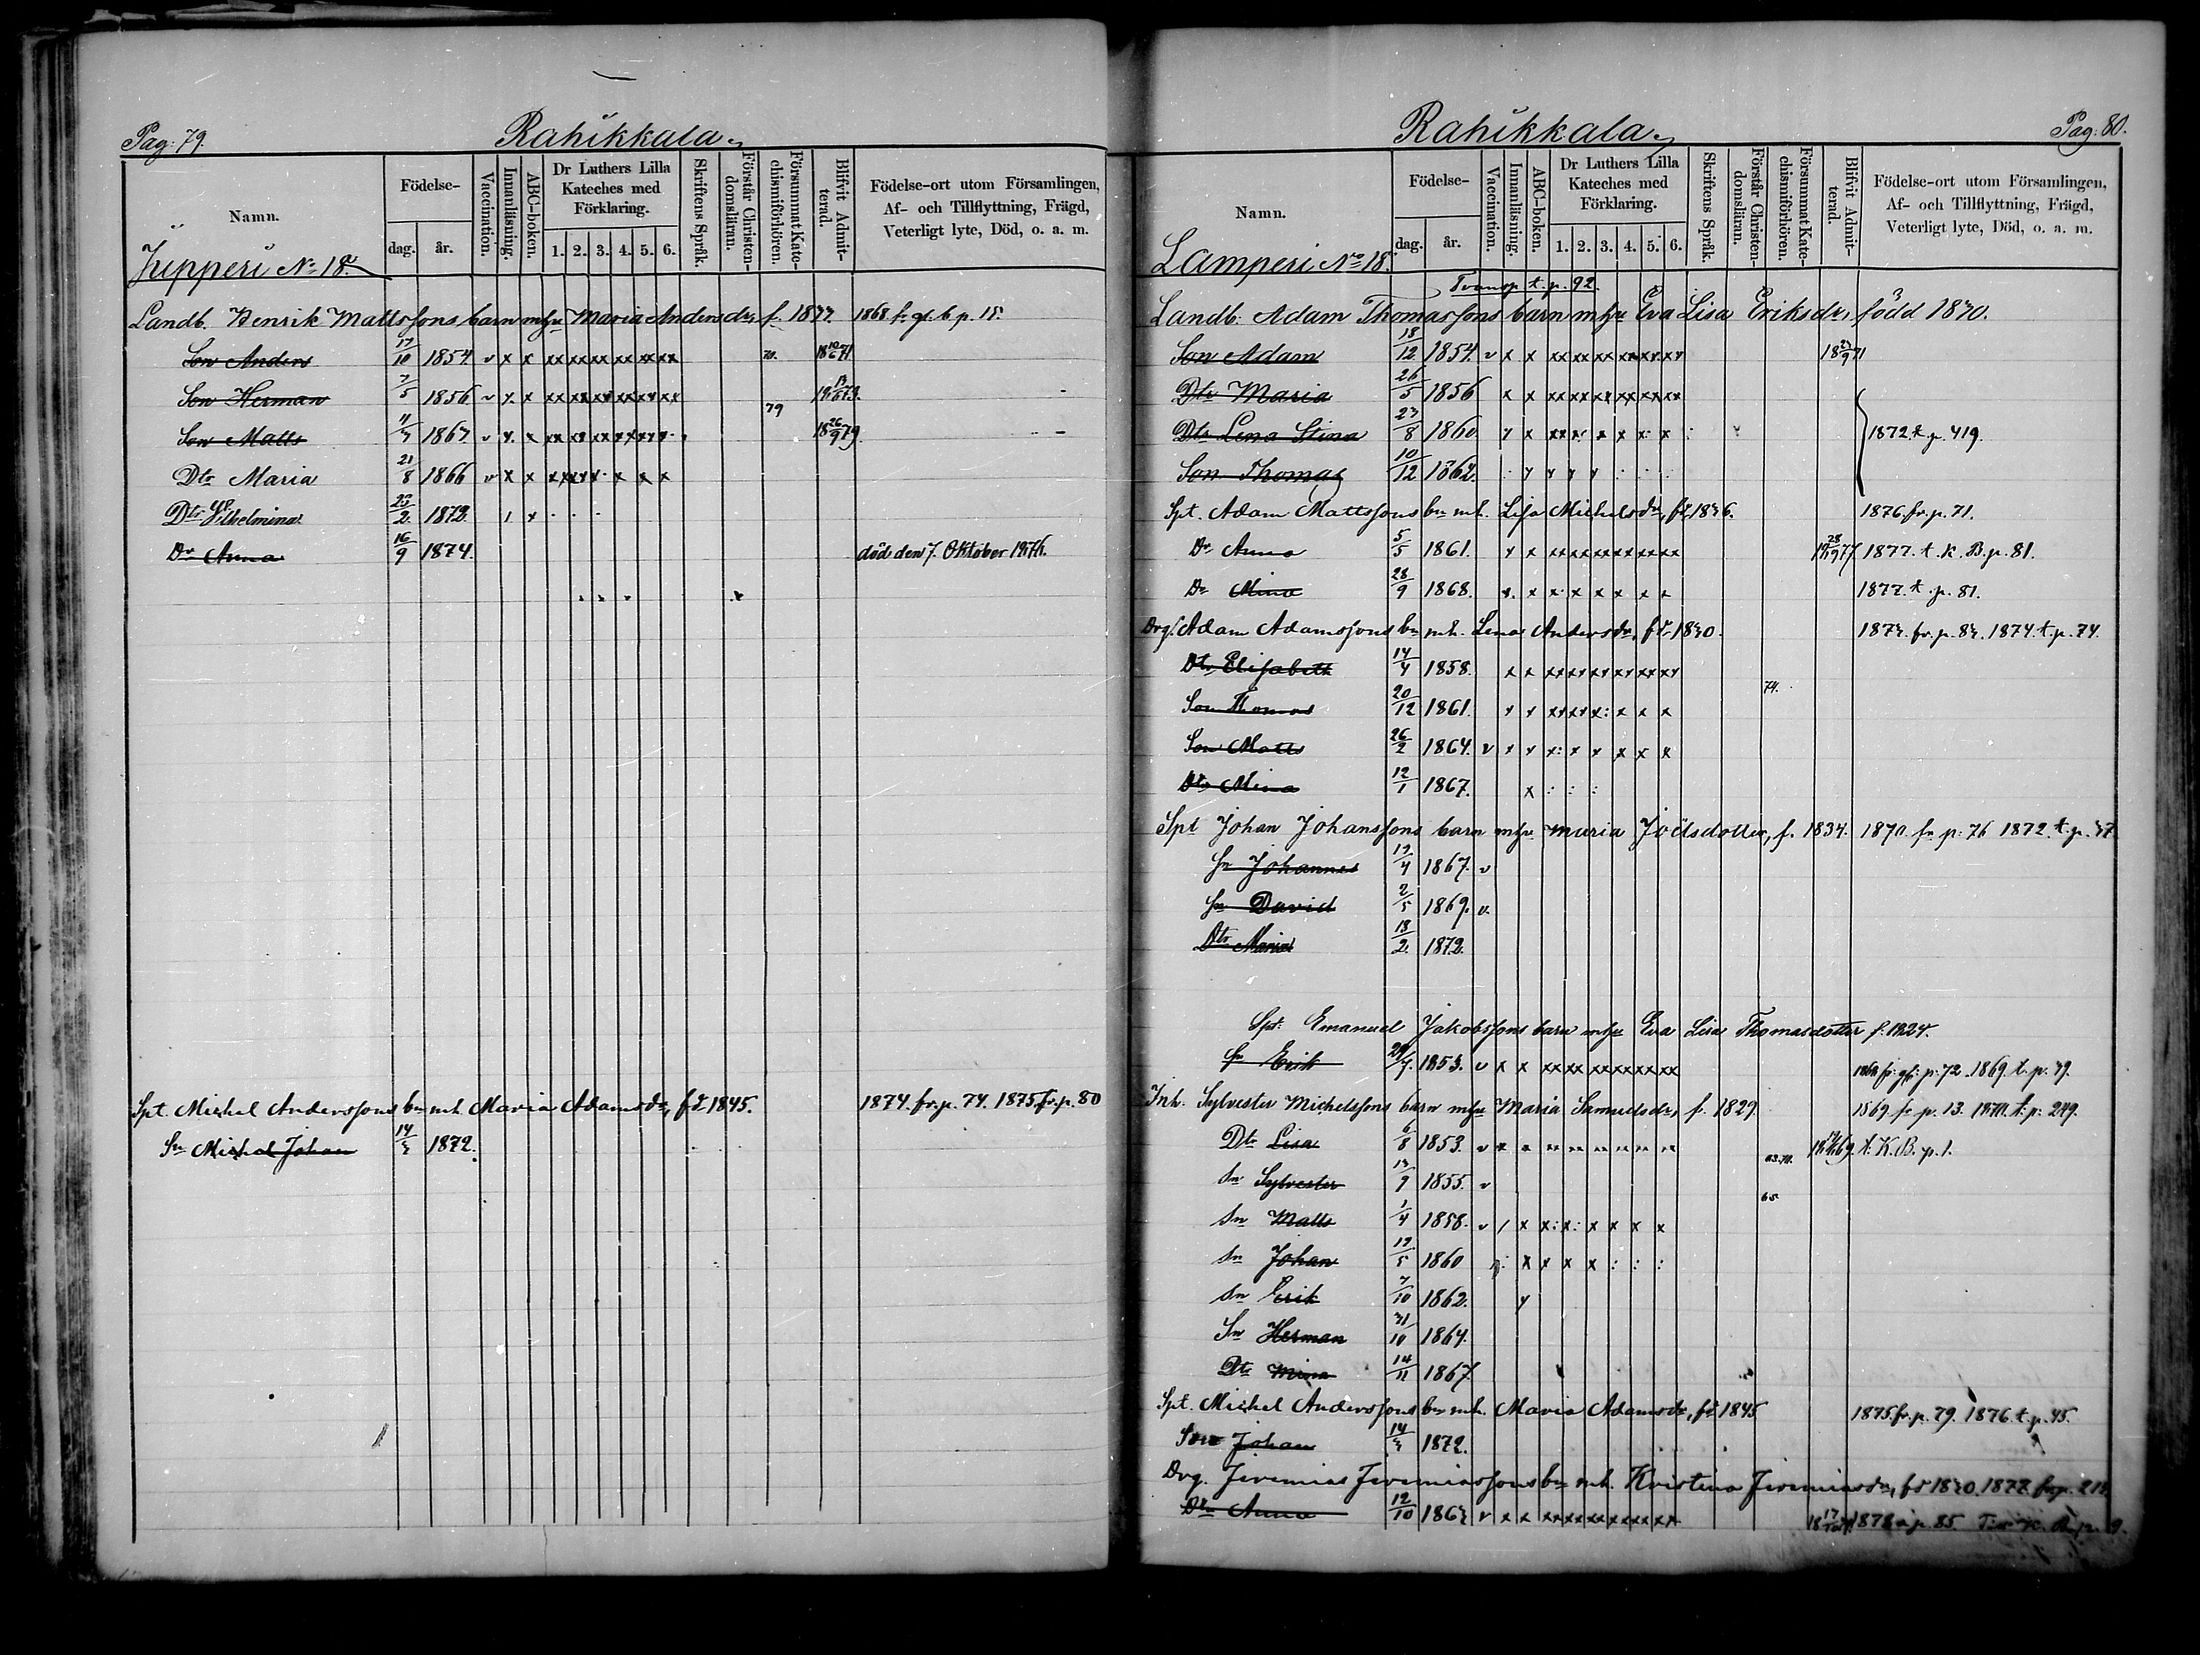 Pag: 79.
Rahikkala
Namn.
Födelse-
dag.
år.
Vaccination.
Innanläsning.
ABC-boken.
Dr Luthers Lilla Kateches med Förklaring.
1. 2. 3. 4. 5. 6.
Skriftens Språk.
Förstår Christendomsläran.
Försummat Katechismiförhören.
Blifvit Admitterad.
Födelse-ort utom Församlingen, Af- och Tillflyttning, Frägd, Veterligt lyte, Död, o. a. m.
Jupperi No 18.
Landb. Henrik Mattssons barn m hu Maria Andersdr, f.
Son Anders 17/10 1854. v x x xx xx xx xx xx xx 70.
Son Herman 7/5 1856 v x x xx xx xx xx xx xx
Son Matts 79
Dtr Maria 21/8 1866 v x x
Dtr Wilhelmina 1873.
Dr Anna 16/9 1874. död den 7. Oktober
Spt. Michel Anderssons bn mh. Maria Adamsdr, fd 1845. 1874. fr. p. 74. 1875. fr. p. 80
Sn Michel Johan 1872.
Pag: 80.
Rahikkala
Namn.
Födelse-
dag.
år.
Vaccination.
Innanläsning.
ABC-boken.
Dr Luthers Lilla Kateches med Förklaring.
1. 2. 3. 4. 5. 6.
Skriftens Språk.
Förstår Christendomsläran.
Försummat Katechismiförhören.
Blifvit Admitterad.
Födelse-ort utom Församlingen, Af- och Tillflyttning, Frägd, Veterligt lyte, Död, o. a. m.
Lamperi No 18.
Transp t. p. 92.
Landb. Adam Thomassons barn m hu Eva Lisa Eriksdr, född
Son Adam 18/12 1854. v x x xx xx xx xx xx xx
Dtr Maria 26/5 1856 x x xx xx xx xx xx xx
Dtr Lena Stina 1860 1872 t. p. 419.
Son Thomas 10/12 1862.
Spt. Adam Mattssons bn mh. Lisa Michelsdr, fd 1876. fr. p. 71.
Dr Anna 5/5 1861. x x xx xx xx xx xx xx 1877. t. K. B. p. 81.
Dr Mina 28/9 1868. x. x x x x x x x 1877. t. p. 81.
Drg. Adam Adamssons bn mh. Lena Andersdr, fd 1874. t. p. 74.
Dtr Elisabeth 14/4 1858. x x xx xx xx xx xx xx
Son Thomas 20/12 1861. 74.
Son Matts 26/2 1864. v
Dtr Mina 12/1 1867. x : : :
Spt Johan Johanssons barn m hu Maria Joelsdotter, f. 1834. 1870. fr p. 76 1872. t. p.
Sn Johannes 1867. v
Sn David 2/5 1869. v.
Dtr Maria 13/2. 1872.
Spt. Emanuel Jakobssons barn m hu Eva Lisa Thomasdotter f. 1824.
Sn Erik 1853. v x x xx xx xx xx xx xx p. 72. 1869 t. p.
Inh. Sylvester Michelssons barn m hu Maria Samuelsdr, f. 1829. 1869 fr p. 13. t. p. 249.
Dtr Lisa 6/8 1853. v t. K. B. p. 1.
Sn Sylvester 1855. v
Sn Matts 1/4 1858. v 65
Sn Johan 1860
Sn Erik 7/10 1862.
Sn Herman 31/10 1864.
Dtr Mina 14/11 1867.
Spt. Michel Anderssons bn mh. Maria Adamsdr, fd 1845 1875. fr. p. 79. 1876. t. p. 45.
Son Johan 1872.
Drg. Jeremias Jeremiassons bn mh. Kristina Jeremiasdr, fd
Dtr Anna 12/10 v x x xx xx xx xx xx xx